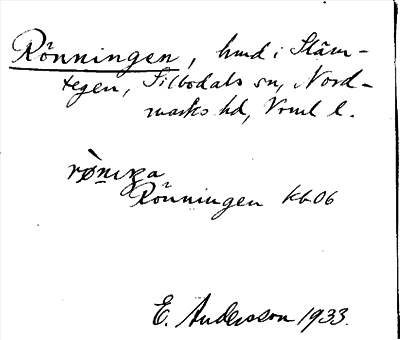 Rönningen, hmd i Släm-
tegen, Silbodals sn, Nord-
marks hd, Vrml l.
Rönningen kb 06
E. Andersson 1933.